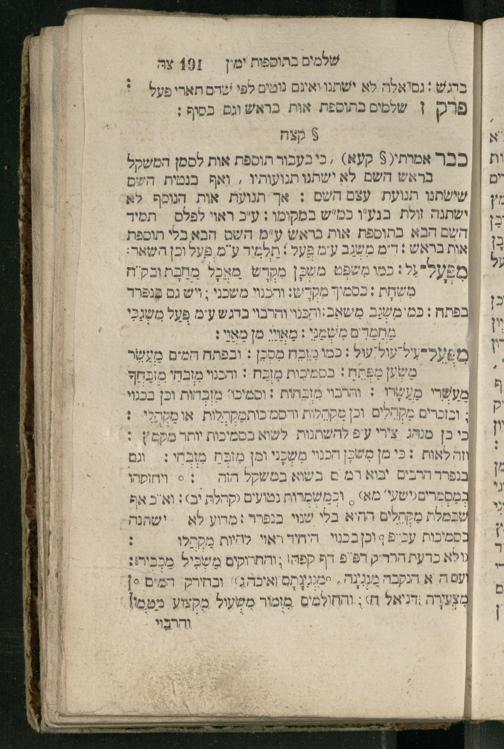 שלמים בתוספות ימין 191 צה
בדגש : גם אלה לא ישתנו ואינם נוטים לפי שהם תארי פעל :
פרק ז שלמים בתוספת אות בראש וגם בסוף :
§ קצח
כבר אמרתי (§ קעא) , כי בעבור תוספת אות לסמן המשקל
בראש השם לא ישתנו תנועותיו , ואף בנטית השם
שישתנו תנועת עצם השם : אך תנועת אות הנוסף לא
ישתנה זולת בנע״ו כמ״ש במקומו : ע״כ ראוי לפלס תמיד
השם הבא בתוספת אות בראש ע״מ השם הבא בלי תוספת
אות בראש : ד״מ משגב ע״מ פעל : תלמיד ע״מ פעל וכן השאר :
מפעל־על : כמו משפט משכן מקדש מאכל מחבת ובק״ח
משחת : בסמיך מקדש : והכנוי משכני ; ויש גם בנפרד
בפתח : כמו משגב משאב : והכנוי והרבוי בדגש ע״מ פעל משגבי
מחמדים משמני : מאויי מן מאוי :
מפעל־עיל־עול־עול : כמו מזבח מסבן : ובפתח המ״ם מעשר
משען מפתח : בסמיכות מזבח : והכנוי מזבחי מזבחך
מעשרי מעשרו : והרבוי מזבחות : וסמיכו׳ מזבחות וכן בכנוי
; ובזכרים מקהלים וכן מקהלות והסמיכות מקהלות או מקהלי :
כי כן מנהג צירי ע״פ להשתנות לשוא בסמיכות יותר מקמץ :
וזה לאות : כי מן משכן הכנוי משכני ומן מזבח מזבחי : וגם
בנפרד הרבים יבוא רמ״ם בשוא במשקל הזה : ויחזקהו
במסמרים (ישעי׳ מא) . וכמשמרות נטועים (קהלת יב) : וא״כ אף
שבמלת מקהלים הה״א בלי שנוי בנפרד : מדוע לא ישתנה
בסמיכות וכן בכנוי היחיד ראוי להיות מקהלו :
ולא כדעת הרד״ק דפ״פ דף קפה) ; והחרוקים משכיל מכביר :
ועם ה״א הנקבה מנגינה , מנגינתם (איכה ג) ובחירק המ״ם מן
מצעירה (דניאל ח) ; והחולמים מזמור משעול מקצוע מטמון
והרבוי